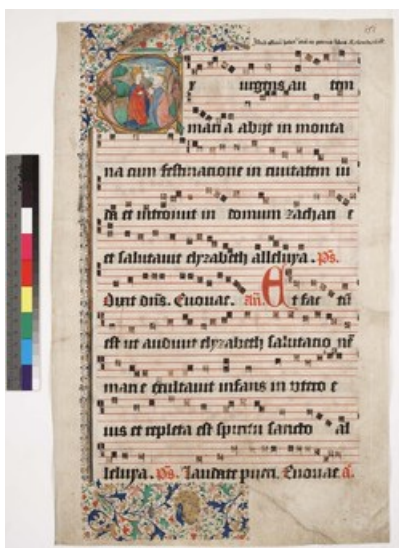 Ex urgens au tem
maria abijt in monta
na cum festinatione in ciuitatem iu
da et intrauit in domum zachari e
et salutauit elyzabeth alleluya . p̄s.
Dixit dn̄s. Euouae. an̄. Et fac tū
est ut audiuit elyzabeth salutatio nē
mari e exultauit infans in vtero e
ius et repleta est spiritu sancto al
leluya . p̄s. Laudate pueri. Euouae. ā.